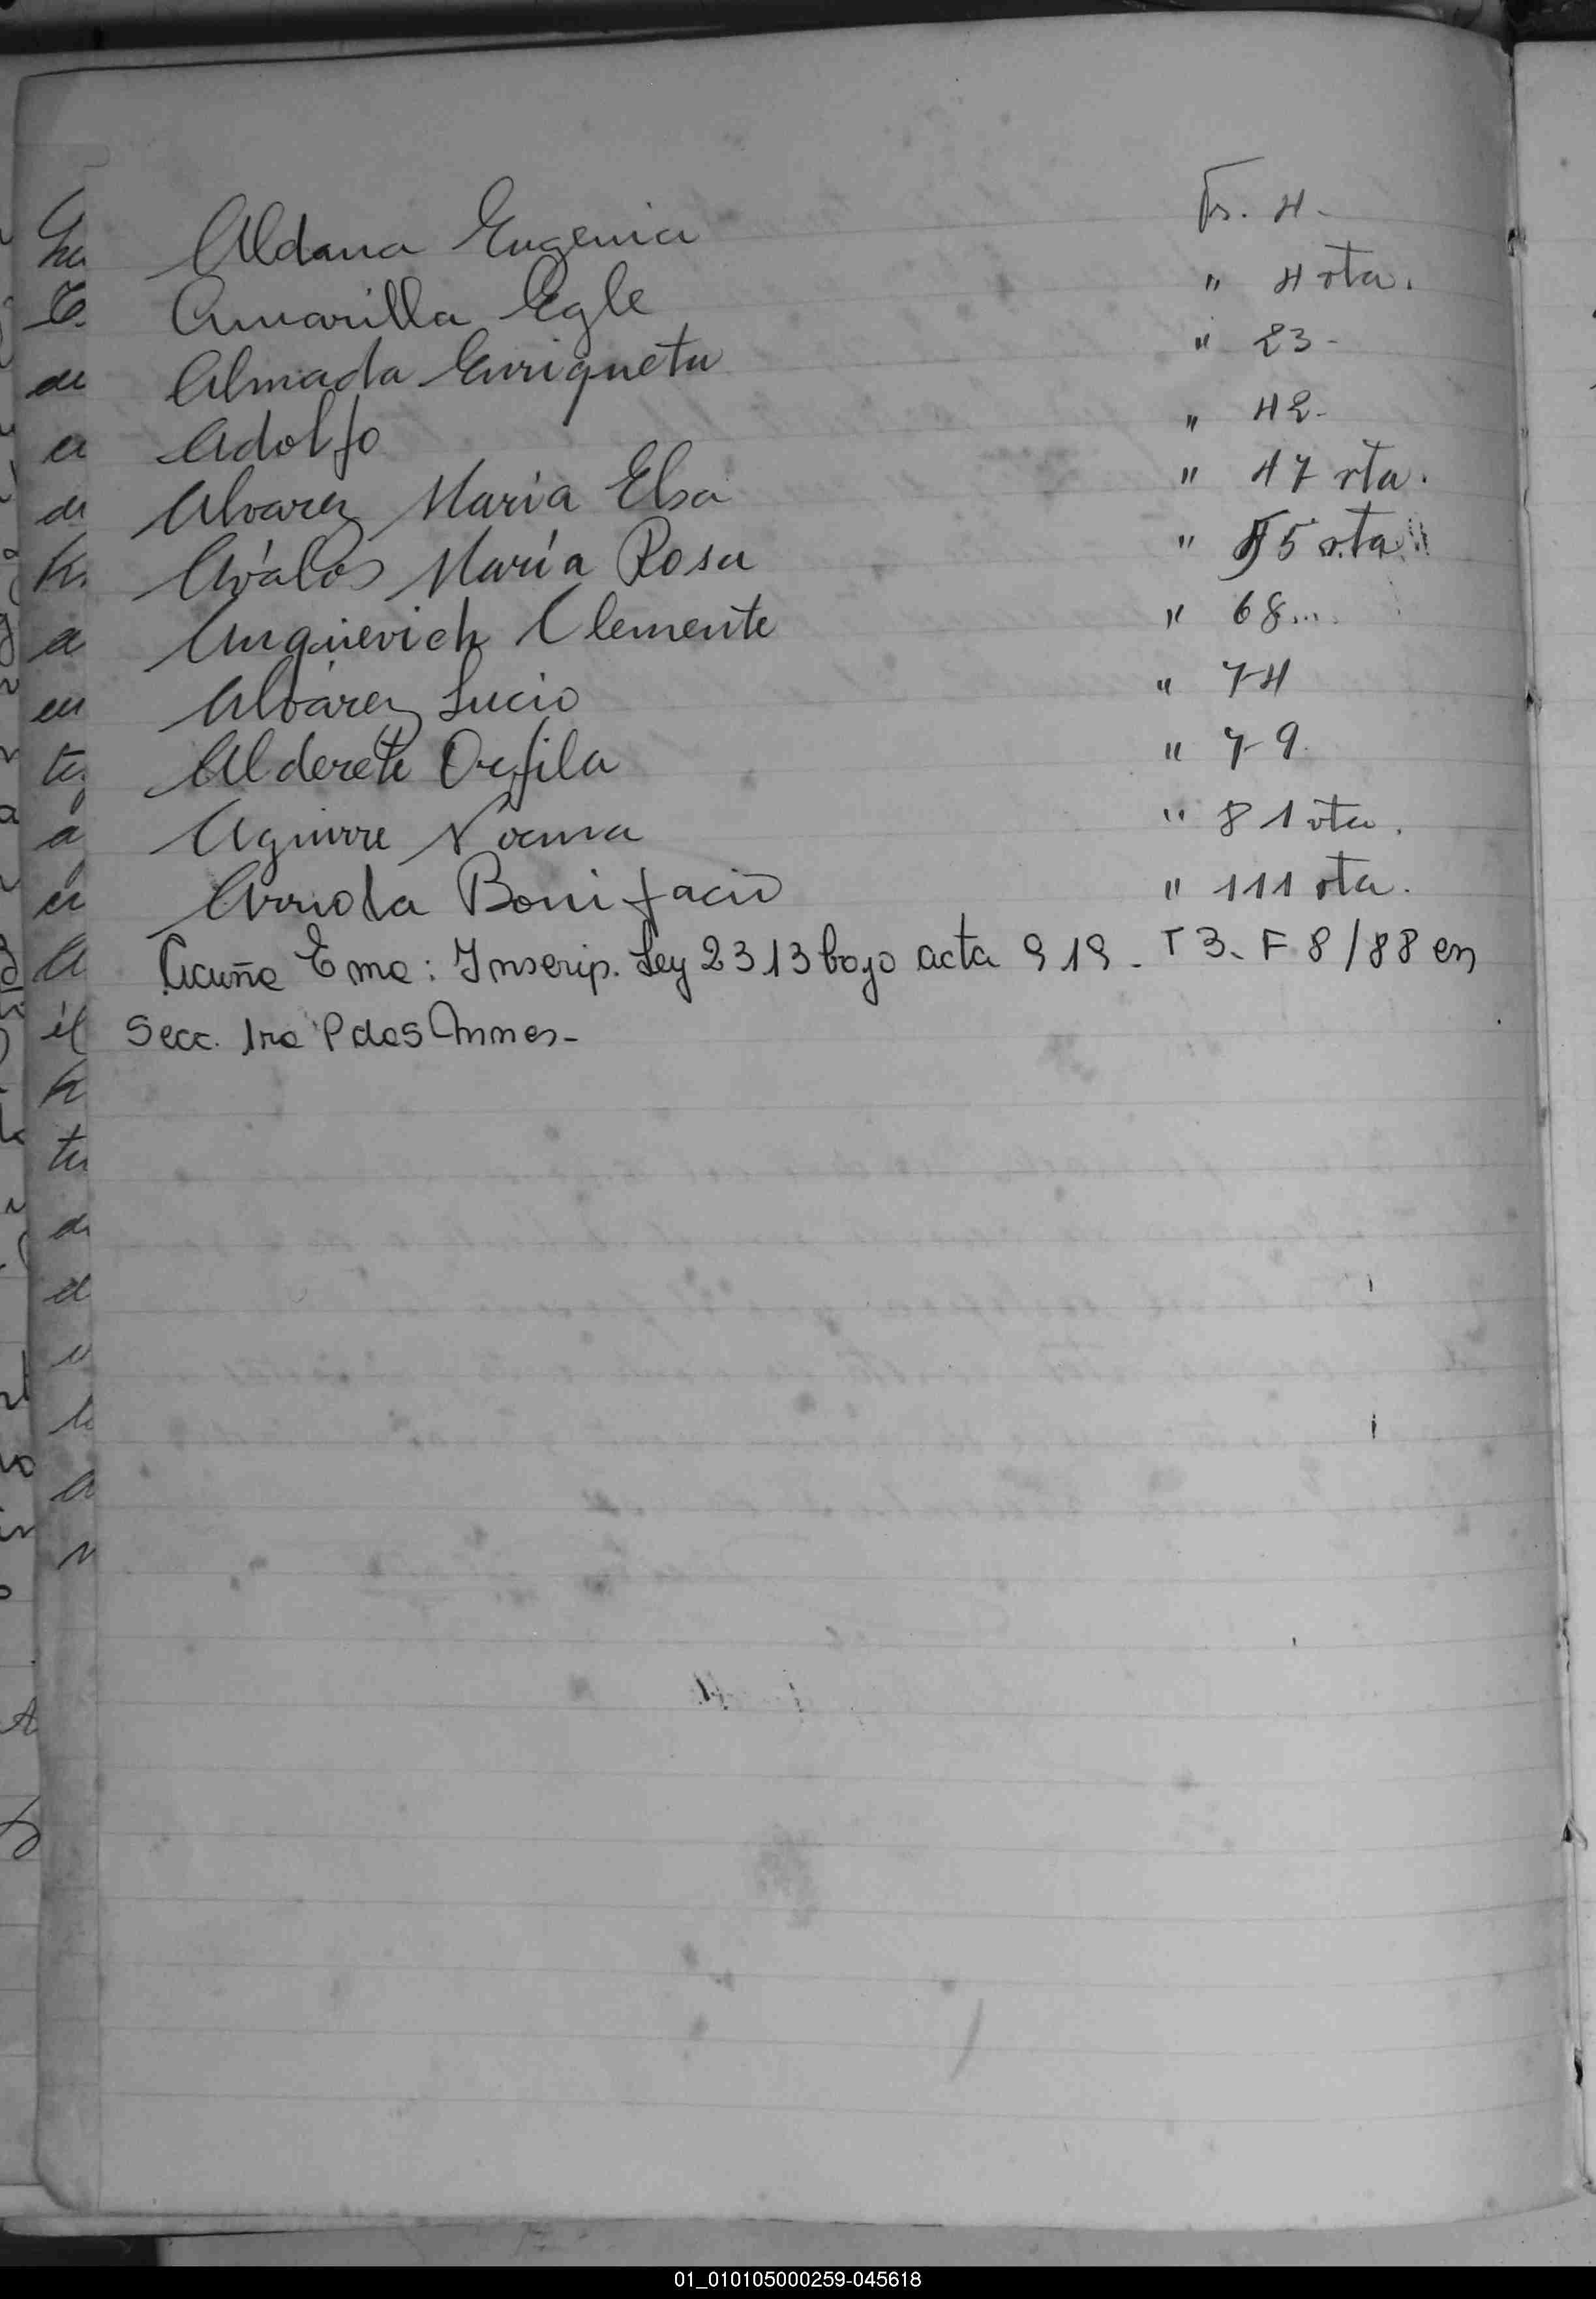 Aldana Eugenia Fs. 4.
Amarilla Egle " 4 vta.
Almada Enriqueta " 23-
Adolfo " 42-
Alvarez María Elsa " 47 vta.
Aválos María Rosa " 55 vta
Clemente " 68...
Alvárez Lucio " 74
Alderete Orfila " 79.
Aguirre Norma " 81 vta.
Arriola Bonifacio " 111 vta.
Acuña Ema: Inscrip. Ley 2313 bajo acta 919- T 3- F 8/88 en
Secc. 1ra Pdas
01_010105000259-045618